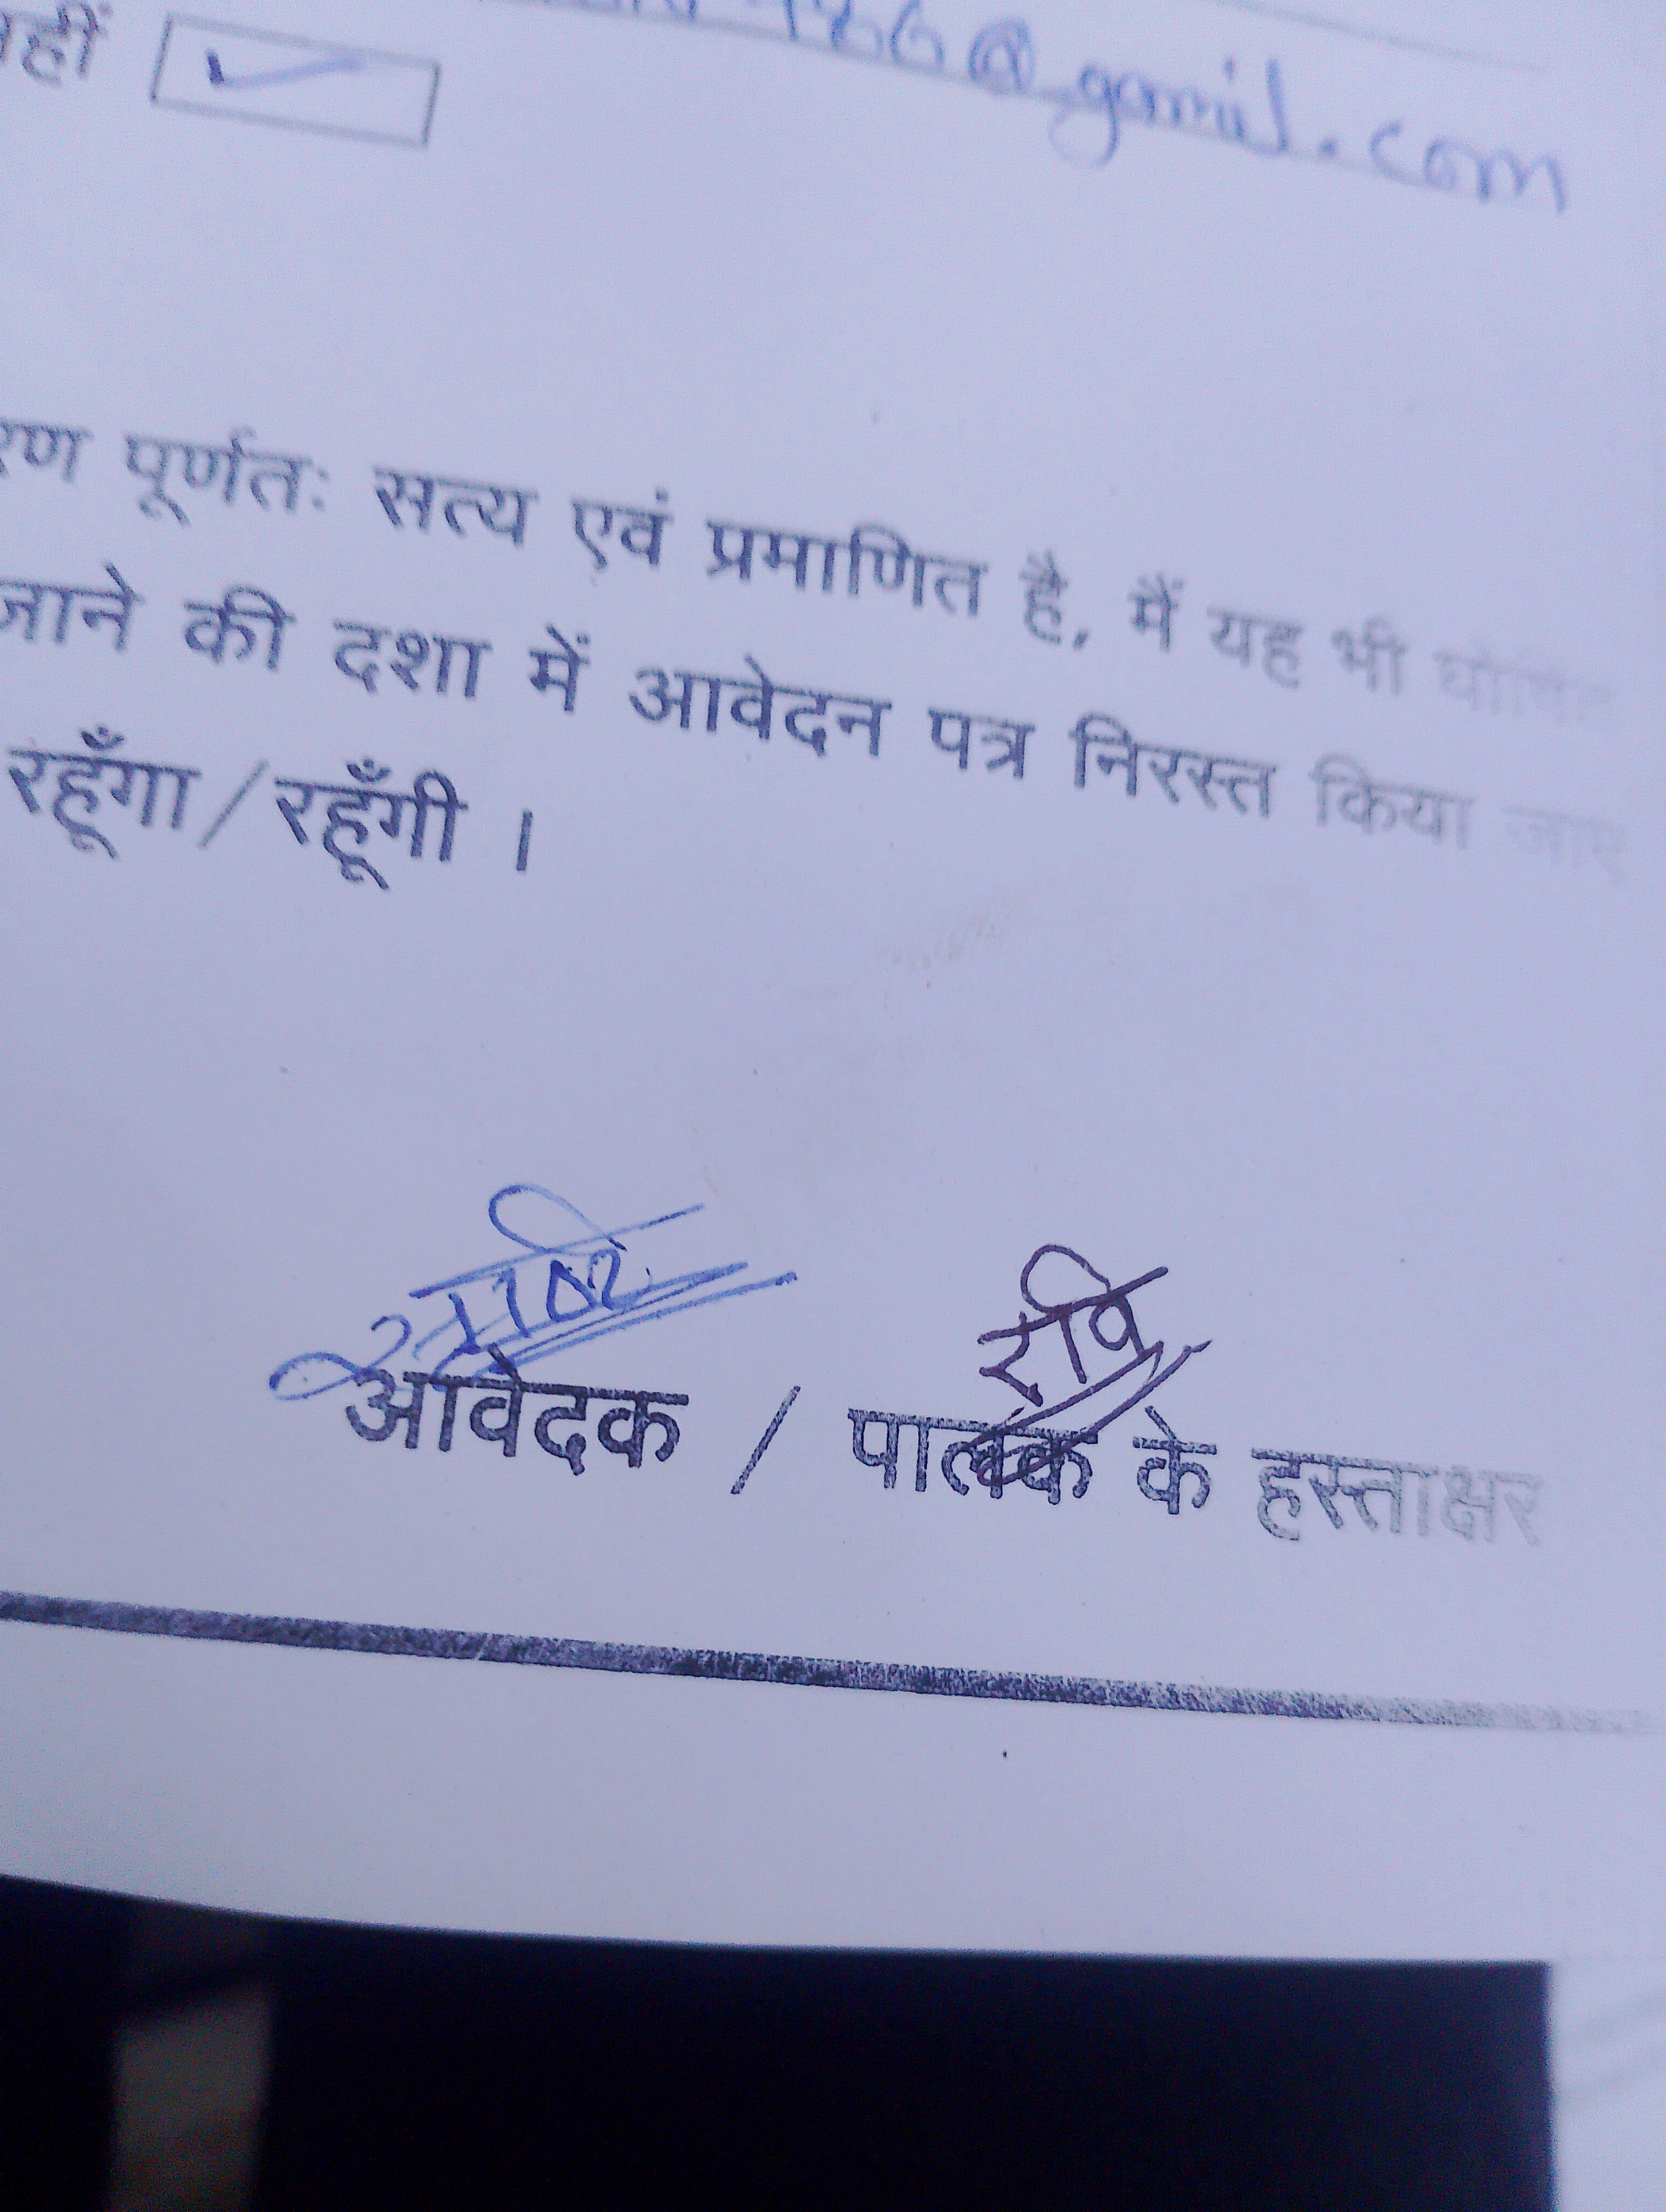 786@gamil.com
नहीं
पूर्णतः सत्य एवं प्रमाणित है, मैं यह भी घोषित
जाने की दशा में आवेदन पत्र निरस्त किया जाए
रहूँगा/रहूँगी ।
रवि
आवेदक / पालक के हस्ताक्षर